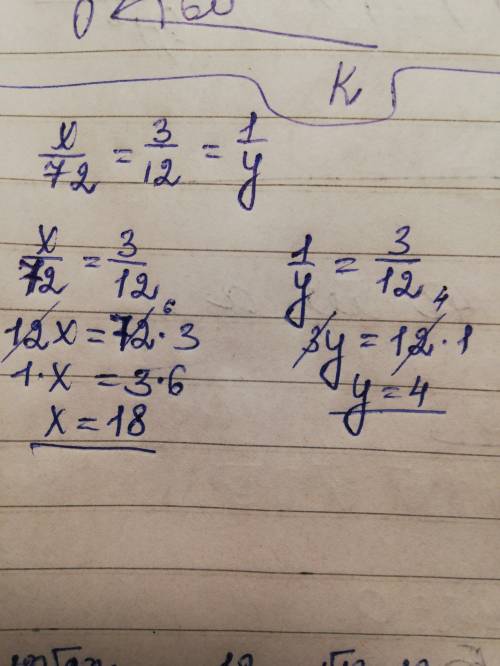 K
x/72 = 3/12 = 1/y
x/72 = 3/12
12x = 72·3
6
1·x = 3·6
x = 18
1/y = 3/12
4
3y = 12·1
y = 4